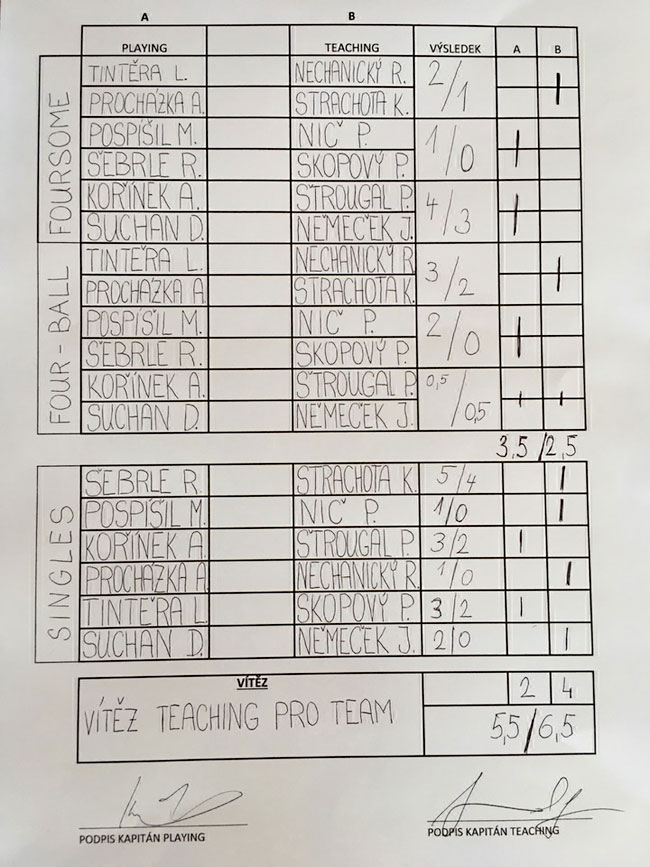 A B
PLAYING TEACHING VÝSLEDEK A B
FOURSOME
TINTĚRA L. NECHANICKÝ R. 2/1 1
PROCHÁZKA A. STRACHOTA K.
POSPÍŠIL M. NIČ P. 1/0 1
ŠEBRLE R. SKOPOVÝ P.
KOŘÍNEK A. ŠTROUGAL P. 4/3 1
SUCHAN D. NĚMEČEK J.
FOUR-BALL
TINTĚRA L. NECHANICKÝ R 3/2 1
PROCHÁZKA A. STRACHOTA K.
POSPÍŠIL M. NIČ P. 2/0 1
ŠEBRLE R. SKOPOVÝ P.
KOŘÍNEK A. ŠTROUGAL P. 0,5/0,5 1 1
SUCHAN D. NĚMEČEK J.
3,5/2,5
SINGLES
ŠEBRLE R. STRACHOTA K. 5/4 1
POSPÍŠIL M. NIČ P. 1/0 1
KOŘÍNEK A. ŠTROUGAL P. 3/2 1
PROCHÁZKA A. NECHANICKÝ R. 1/0 1
TINTĚRA L. SKOPOVÝ P. 3/2 1
SUCHAN D. NĚMEČEK J. 2/0 1
VÍTĚZ 2 4
VÍTĚZ TEACHING PRO TEAM 5,5/6,5
PODPIS KAPITÁN PLAYING PODPIS KAPITÁN TEACHING